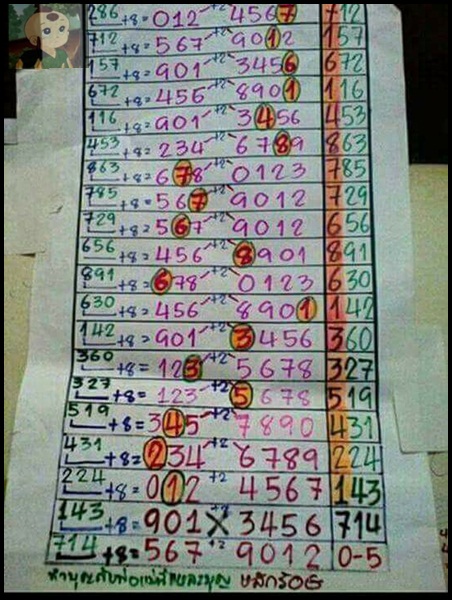 286 +8= 012 +2 4567 712
712 +8= 567 +2 9012 157
157 +8= 901 +2 3456 672
672 +8= 456 +2 8901 116
116 +8= 901 +2 3456 453
453 +8= 234 +2 6789 863
863 +8= 678 +2 0123 785
785 +8= 567 +2 9012 729
729 +8= 567 +2 9012 656
656 +8= 456 +2 8901 891
891 +8= 678 +2 0123 630
630 +8= 456 +2 8901 142
142 +8= 901 +2 3456 360
360 +8= 123 +2 5678 327
327 +8= 123 +2 5678 519
519 +8= 345 +2 7890 431
431 +8= 234 +2 6789 224
224 +8= 012 +2 4567 143
143 +8= 901 X 3456 714
714 +8= 567 +2 9012 0-5
หลักร้อย